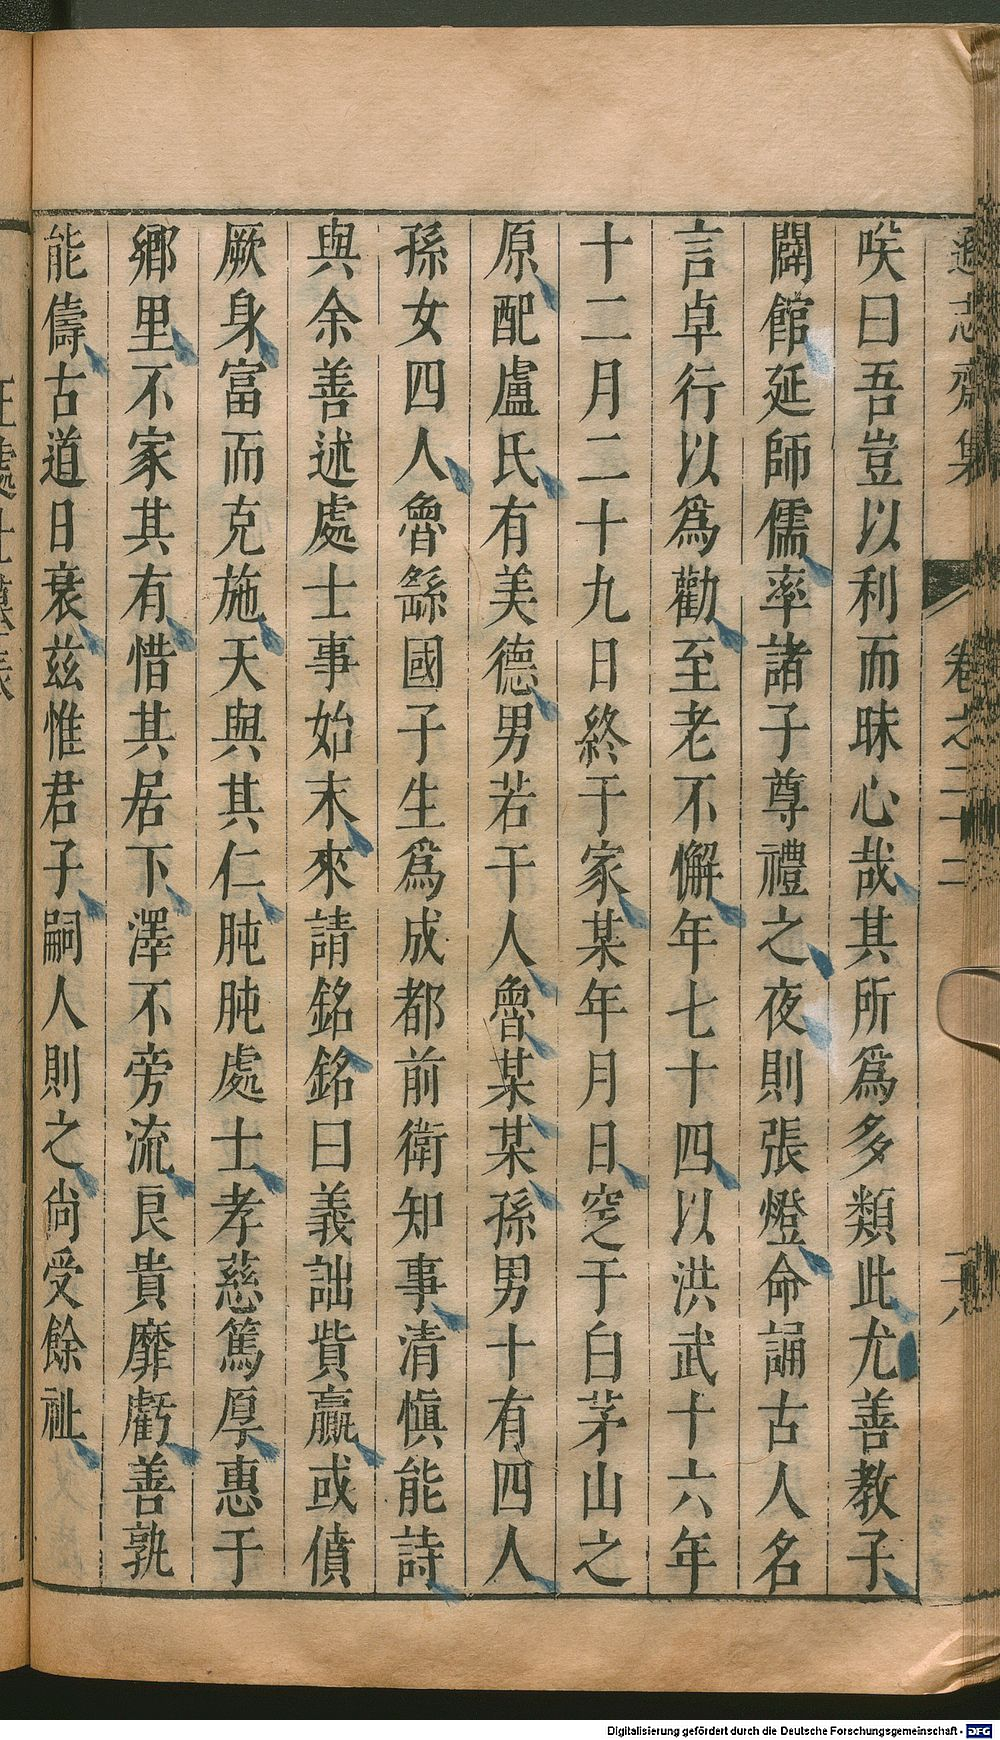 遜志齋集
卷之二十二
唉曰吾豈以利而昧心哉其所爲多類此尤善教子
闢館延師儒率諸子尊禮之夜則張燈命誦古人名
言卓行以爲勸至老不懈年七十四以洪武十六年
十二月二十九日終于家某年月日窆于白茅山之
原配盧氏有美德男若干人魯某某孫男十有四人
孫女四人魯繇國子生爲成都前衛知事清愼能詩
與余善述處士事始末來請銘銘曰義詘貲贏或僨
厥身富而克施天與其仁肫肫處士孝慈篤厚惠于
鄉里不家其有惜其居下澤不旁流良貴靡虧善孰
能儔古道日衰兹惟君子嗣人則之尚受餘祉
Digitalisierung gefördert durch die Deutsche Forschungsgemeinschaft - DFG